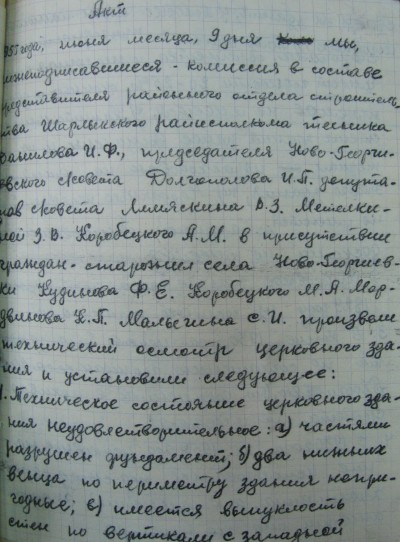 Акт
года, июня месяца, 9 дня мы,
нижеподписавшиеся - комиссия в составе
представителя районного отдела строитель-
тва Шарлыкского райисполкома техника
Данилова И.Ф., председателя Ново-Георги-
евского с/совета Долгополова И.П. депута-
тов с/совета Лямяскина В.З. Метелки-
ной З.В. Коробецкого А.М. в присутствии
граждан-старожил села Ново-Георгиев-
ки Кудинова Ф.Е. Коробецкого М.Я. Мор-
двинова К.П. Малыгина С.И. произвели
технический осмотр церковного зда-
ния и установили следующее:
1. Техническое состояние церковного зда-
ния неудовлетворительное: а) частями
разрушен фундамент; б) два нижних
венца по периметру здания непри-
годные; в) имеется выпуклость
стен по вертикали с западной